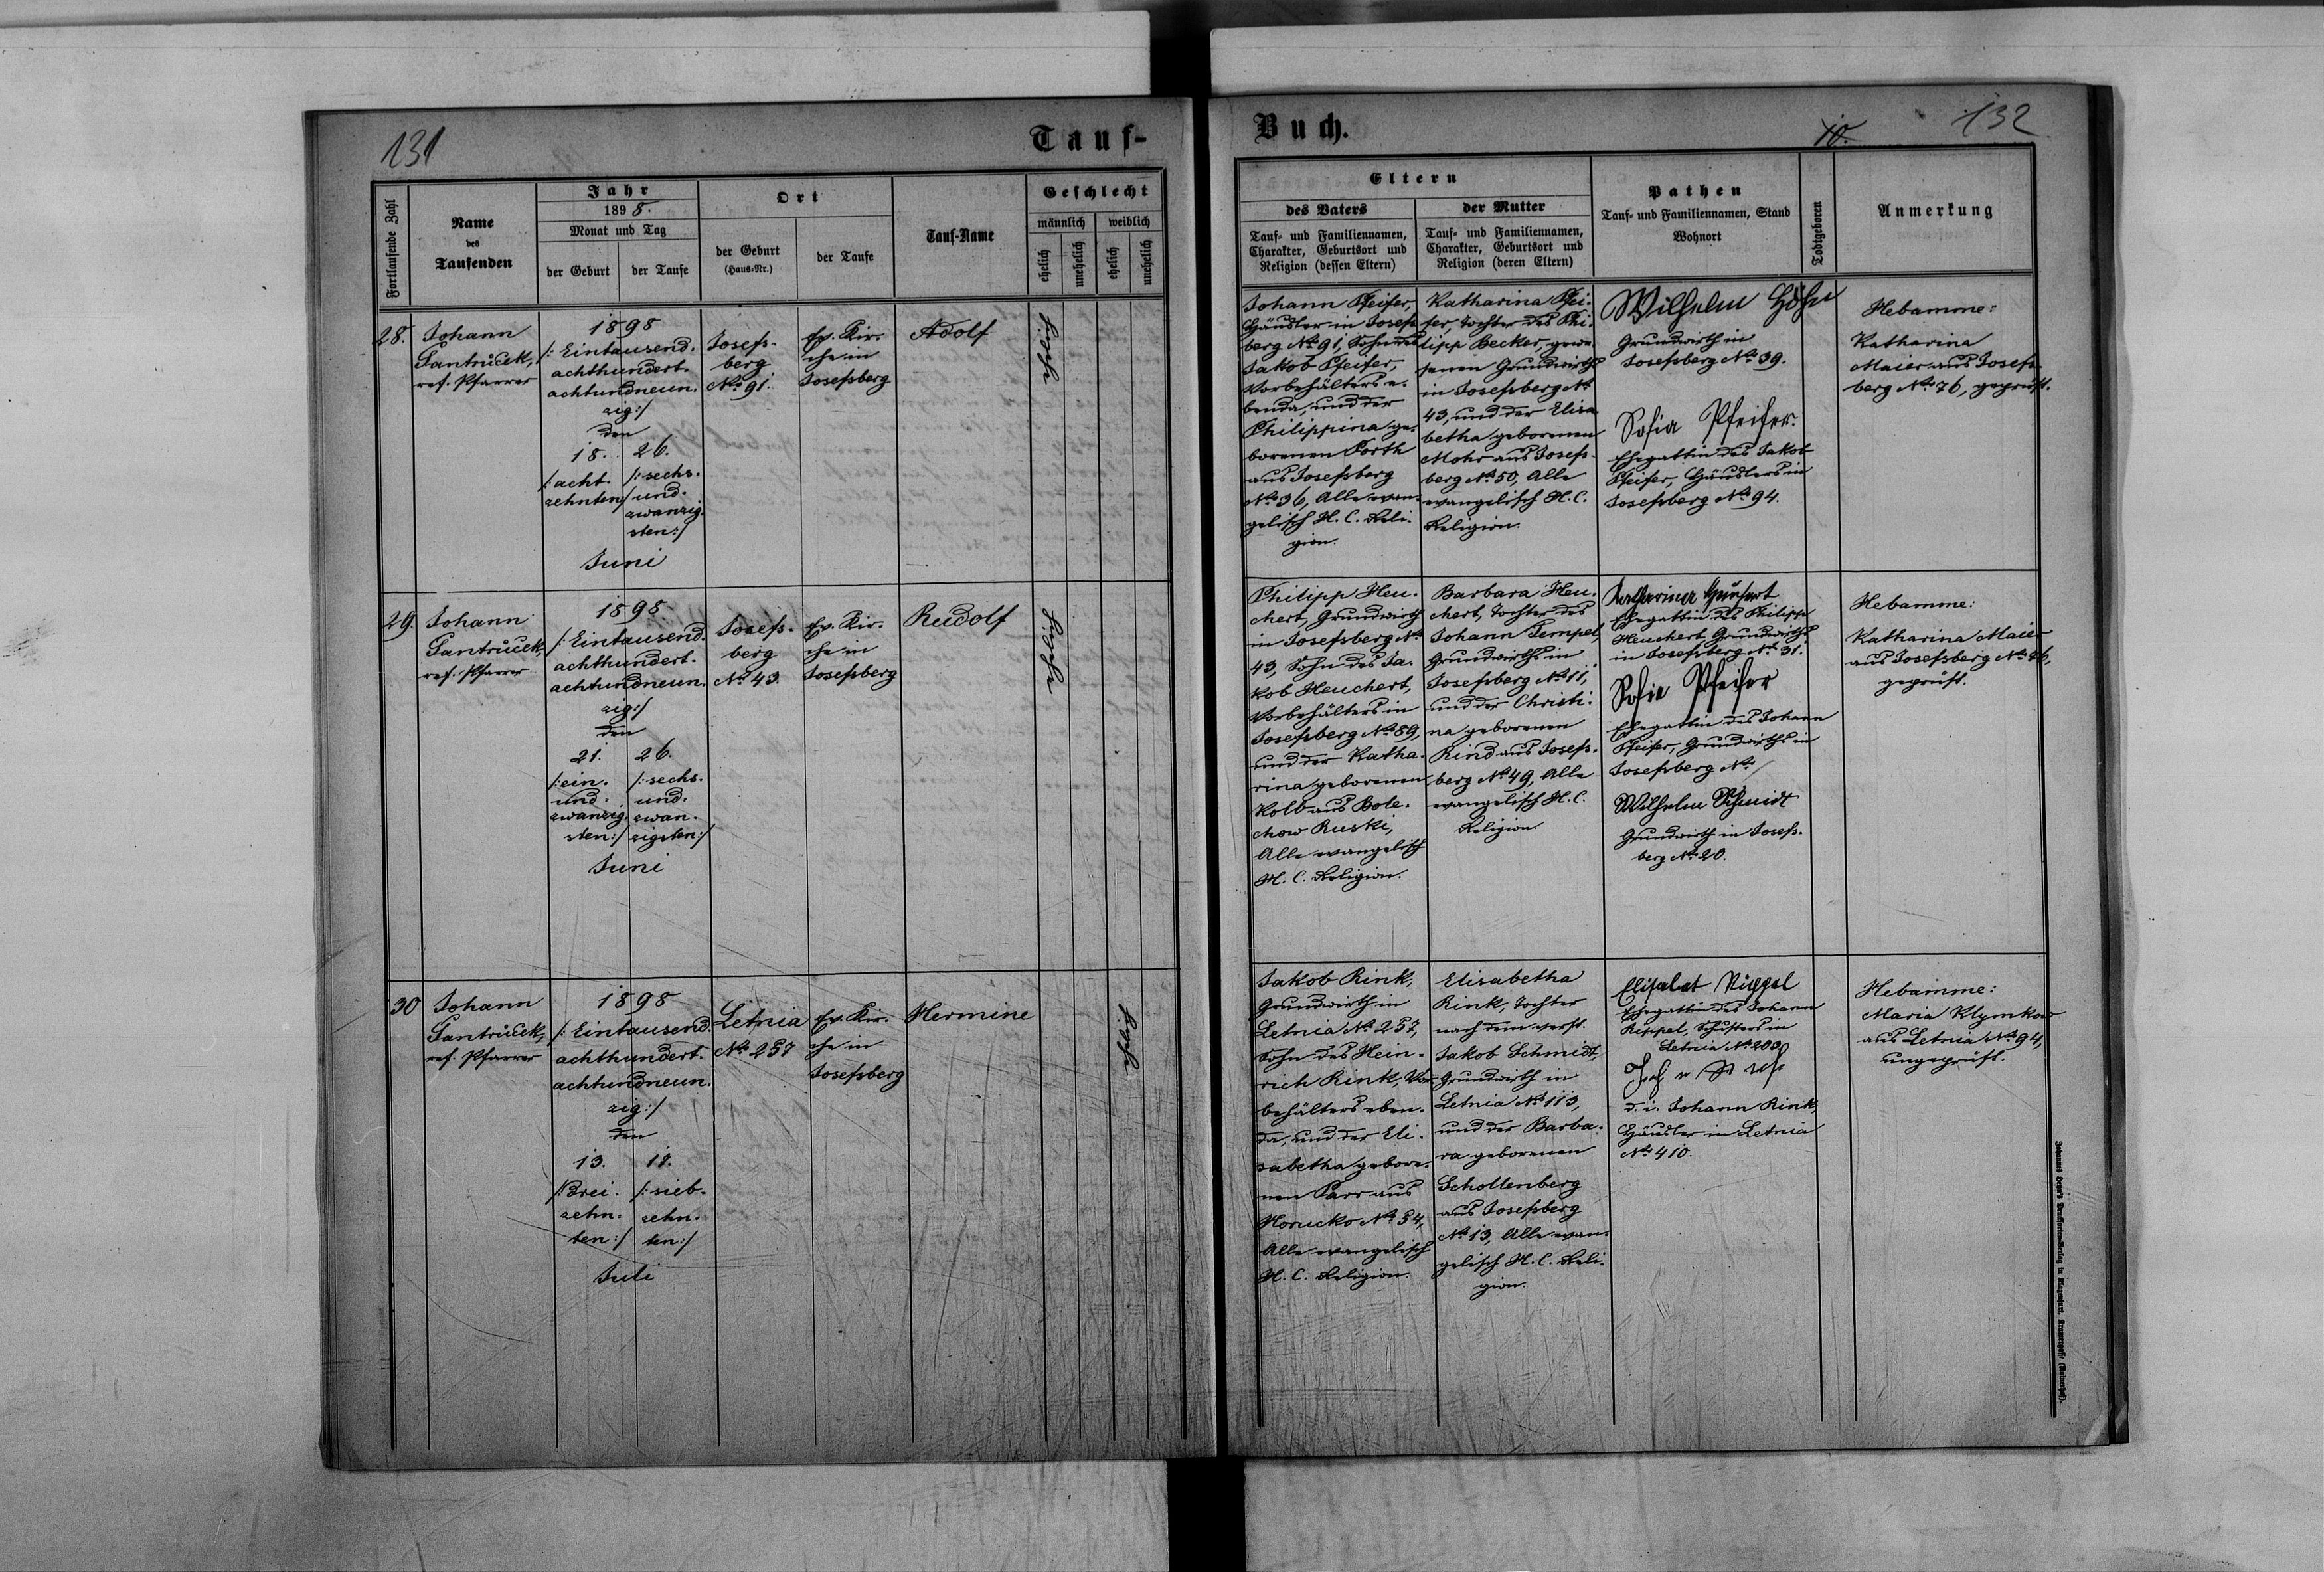 131
Tauf-
Fortlaufende Zahl
Name
des
Taufenden
Jahr
1898.
Monat und Tag
der Geburt
der Taufe
Ort
der Geburt
(Haus-Nr.)
der Taufe
Tauf-Name
Geschlecht
männlich
weiblich
ehelich
unehelich
ehelich
unehelich
28.
Johann
Jantrůček,
ref. Pfarrer
1898
/: Eintausend-
achthundert-
achtundneun-
zig :/
den
18.
/: acht-
zehnten :/
26.
/: sechs-
und-
zwanzig-
sten :/
Juni
Josefs-
berg
No 91.
Ev. Kir-
che in
Josefsberg
Adolf
ehelich
29.
Johann
Jantrůček,
ref. Pfarrer
1898.
/: Eintausend-
achthundert-
achtundneun-
zig :/
den
21.
/: ein-
und-
zwanzig-
sten :/
26.
/: sechs-
und-
zwan-
zigsten :/
Juni
Josefs-
berg
No 43.
Ev. Kir-
che in
Josefsberg
Rudolf
ehelich
30
Johann
Jantrůček,
ref. Pfarrer
1898
/: Eintausend-
achthundert-
achtundneun-
zig :/
den
13.
/: drei-
zehn-
ten :/
17.
/: sieb-
zehn-
ten :/
Juli
Letnia
No 257
Ev. Kir-
che in
Josefsberg
Hermine
ehelich
Buch.
10.
132
Eltern
des Vaters
Tauf- und Familiennamen,
Charakter, Geburtsort und
Religion (dessen Eltern)
der Mutter
Tauf- und Familiennamen,
Charakter, Geburtsort und
Religion (deren Eltern)
Pathen
Tauf- und Familiennamen, Stand
Wohnort
Todtgeboren
Anmerkung
Johann Pfeifer,
Häusler in Josefs-
berg No 91, Sohn des
Jakob Pfeifer,
Vorbehälters e-
benda, und der
Philippina ge-
borenen Porth
aus Josefsberg
No 36, Alle evan-
gelisch H. C. Reli-
gion.
Katharina Pfei-
fer, Tochter des Phi-
lipp Becker, gewe-
senen Grundwirths
in Josefsberg No
43, und der Elisa-
betha geborenen
Mohr aus Josefs-
berg No 50, Alle
evangelisch H. C.
Religion.
Wilhelm Höhn
Grundwirth in
Josefsberg No 39.
Sofia Pfeifer.
Ehegattin des Jakob
Pfeifer, Häuslers in
Josefsberg No 94.
Hebamme:
Katharina
Maier aus Josefs-
berg No 76, geprüft.
Philipp Heu-
chert, Grundwirth
in Josefsberg No
43, Sohn des Ja-
kob Heuchert,
Vorbehälters in
Josefsberg No 89,
und der Katha-
rina geborenen
Kolb aus Bole-
chow Ruski,
Alle evangelisch
H. C. Religion.
Barbara Heu-
chert, Tochter des
Johann Tempel,
Grundwirths in
Josefsberg No 11,
und der Christi-
na geborenen
Rind aus Josefs-
berg No 49, Alle
evangelisch H. C.
Religion
Katharina Heuchert
Ehegattin des Philipp
Heuchert, Grundwirths
in Josefsberg No 31.
Sofie Pfeifer
Ehegattin des Johann
Pfeifer, Grundwirths in
Josefsberg No
Wilhelm Schmidt
Grundwirth in Josefs-
berg No 20.
Hebamme:
Katharina Maier
aus Josefsberg No 76,
geprüft.
Jakob Rink,
Grundwirth in
Letnia No 257,
Sohn des Hein-
rich Rink, Vor-
behälters eben-
da, und der Eli-
sabetha gebore-
nen Parr aus
Horucko No 54,
Alle evangelisch
H. C. Religion.
Elisabetha
Rink, Tochter
nach dem verst.
Jakob Schmidt,
Grundwirth in
Letnia No 113,
und der Barba-
ra geborenen
Schollenberg
aus Josefsberg
No 13, Alle evan-
gelisch H. C. Reli-
gion.
Elisabet Rippel
Ehegattin des Johann
Rippel, Schusters in
Letnia No 200
d. i. Johann Rink,
Häusler in Letnia
No 410.
Hebamme:
Maria Klymkow
aus Letnia No 94,
ungeprüft.